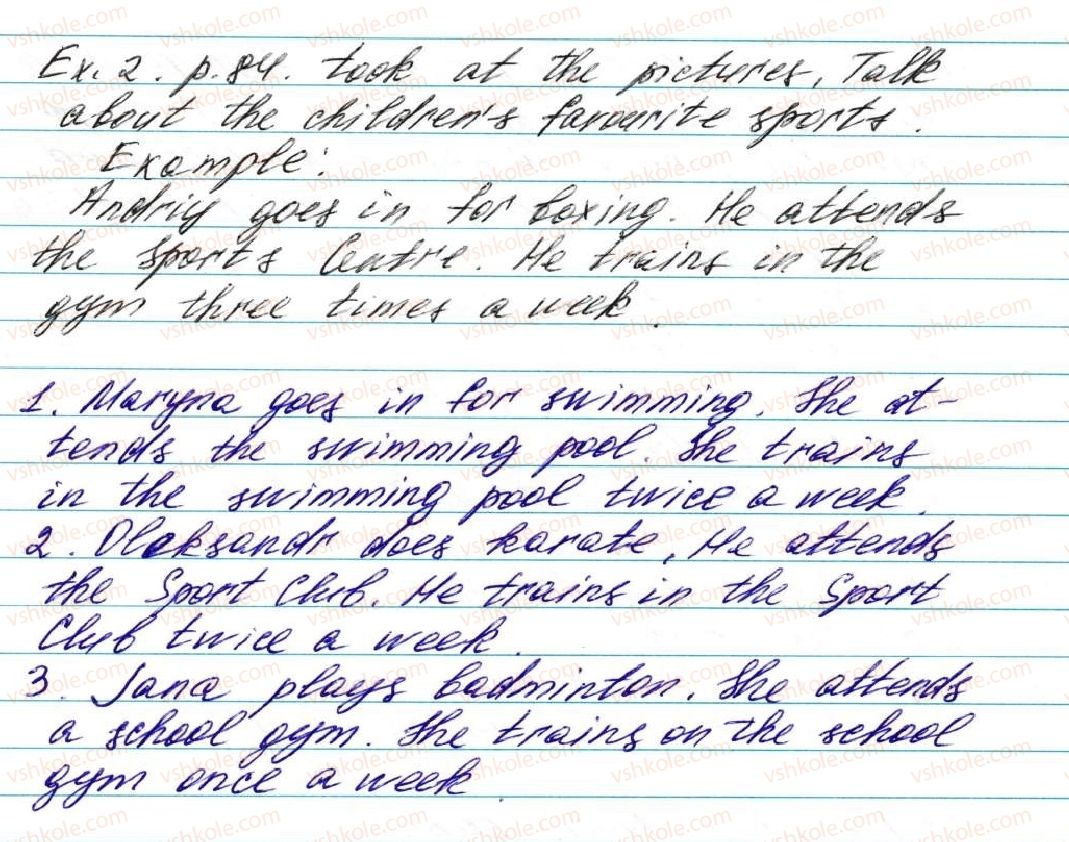 Ex. 2. p. 84. Look at the pictures, Talk
about the children's favourite sports.
Example:
Andriy goes in for boxing. He attends
the Sports Centre. He trains in the
gym three times a week.
1. Maryna goes in for swimming. She at-
tends the swimming pool. She trains
in the swimming pool twice a week.
2. Oleksandr does karate, He attends
the Sport Club. He trains in the Sport
Club twice a week.
3. Jana plays badminton. She attends
a school gym. She trains on the school
gym once a week.